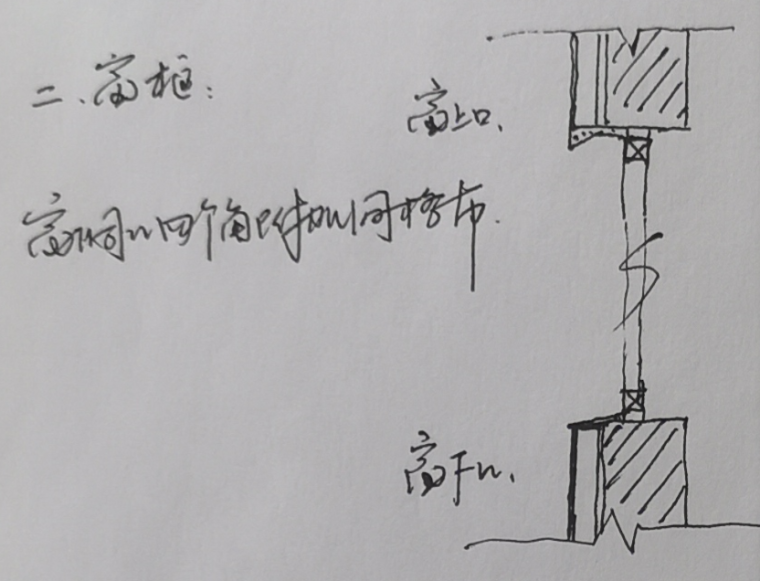 二、窗框:
窗上口、
窗洞口四个角附加网格布.
窗下口、